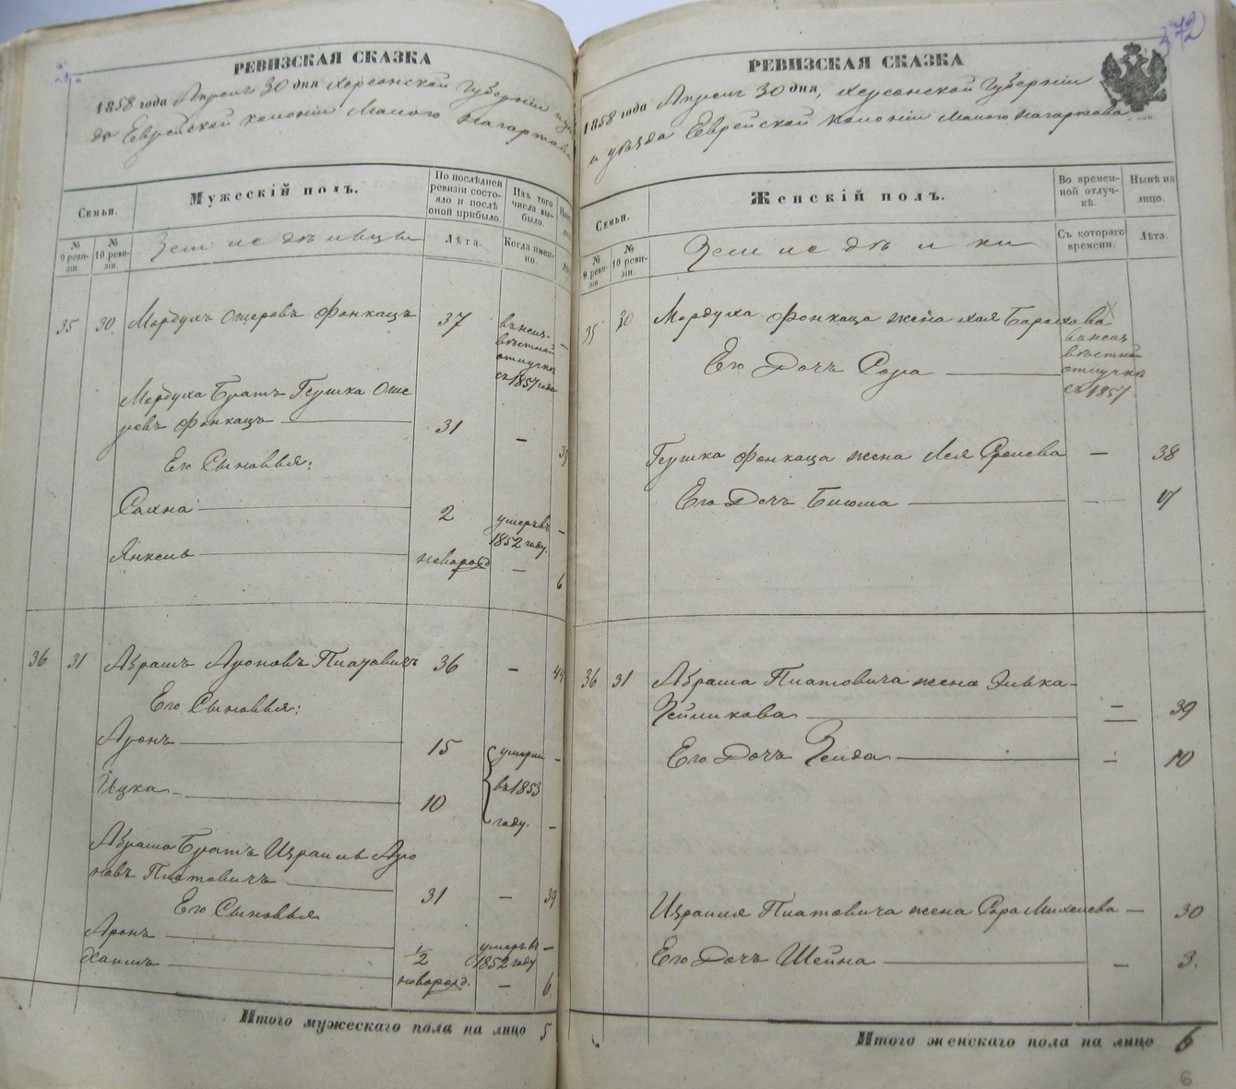 РЕВИЗСКАЯ СКАЗКА
1858 года Апреля 30 дня Херсонской Губерніи
Еврейской колоніи Малого Нагартова
Семьи.
Мужескій полъ.
По послѣдней ревизіи состояло и послѣ оной прибыло.
Изъ того числа выбыло.
№ 9 ревизіи.
№ 10 ревизіи.
Земледѣльцы
Лѣта.
Когда именно.
35 30 Мордухъ Ошеровъ Фонкацъ 37 въ неизвѣстной отлучкѣ съ 1857 года —
Мордуха Братъ Гершка Оше
ровъ Фонкацъ 31 — 39
Его Сыновья:
Сахна 2 умеръ въ 1852 году. —
Янкель новорожд — 6
36 31 Абрамъ Ароновъ Пиатовичъ 36 — 44
Его Сыновья:
Аронъ 15 умерли въ 1853 году. —
Ицка 10 —
Абрама Братъ Израиль Аро
новъ Пиатовичъ 31 — 39
Его Сыновья
Аронъ 1/2 умеръ въ 1852 году —
Хаимъ новорожд. — 6
Итого мужескаго пола на лицо 5
372
РЕВИЗСКАЯ СКАЗКА
1858 года Апреля 30 дня, Херсонской Губерніи
и уѣзда Еврейской Колоніи Малого Нагартова
Семьи.
Женскій полъ.
Во временной отлучкѣ.
Нынѣ на лицо.
№ 9 ревизіи.
№ 10 ревизіи.
Земледѣлки
Съ котораго времени.
Лѣта.
35 30 Мордуха Фонкаца жена Хая Борохова въ неизвѣстной отлучкѣ съ 1857.
Его Дочь Сора
Гершка Фонкаца жена Лея Срелева — 38
Его Дочь Блюма
36 31 Абрама Пиатовича жена Элька
Зейликова — 39
Его Дочь Зелда — 10
Израиля Пиатовича жена Сора Михелева — 30
Его Дочь Шейна — 3.
Итого женскаго пола на лицо 6
6